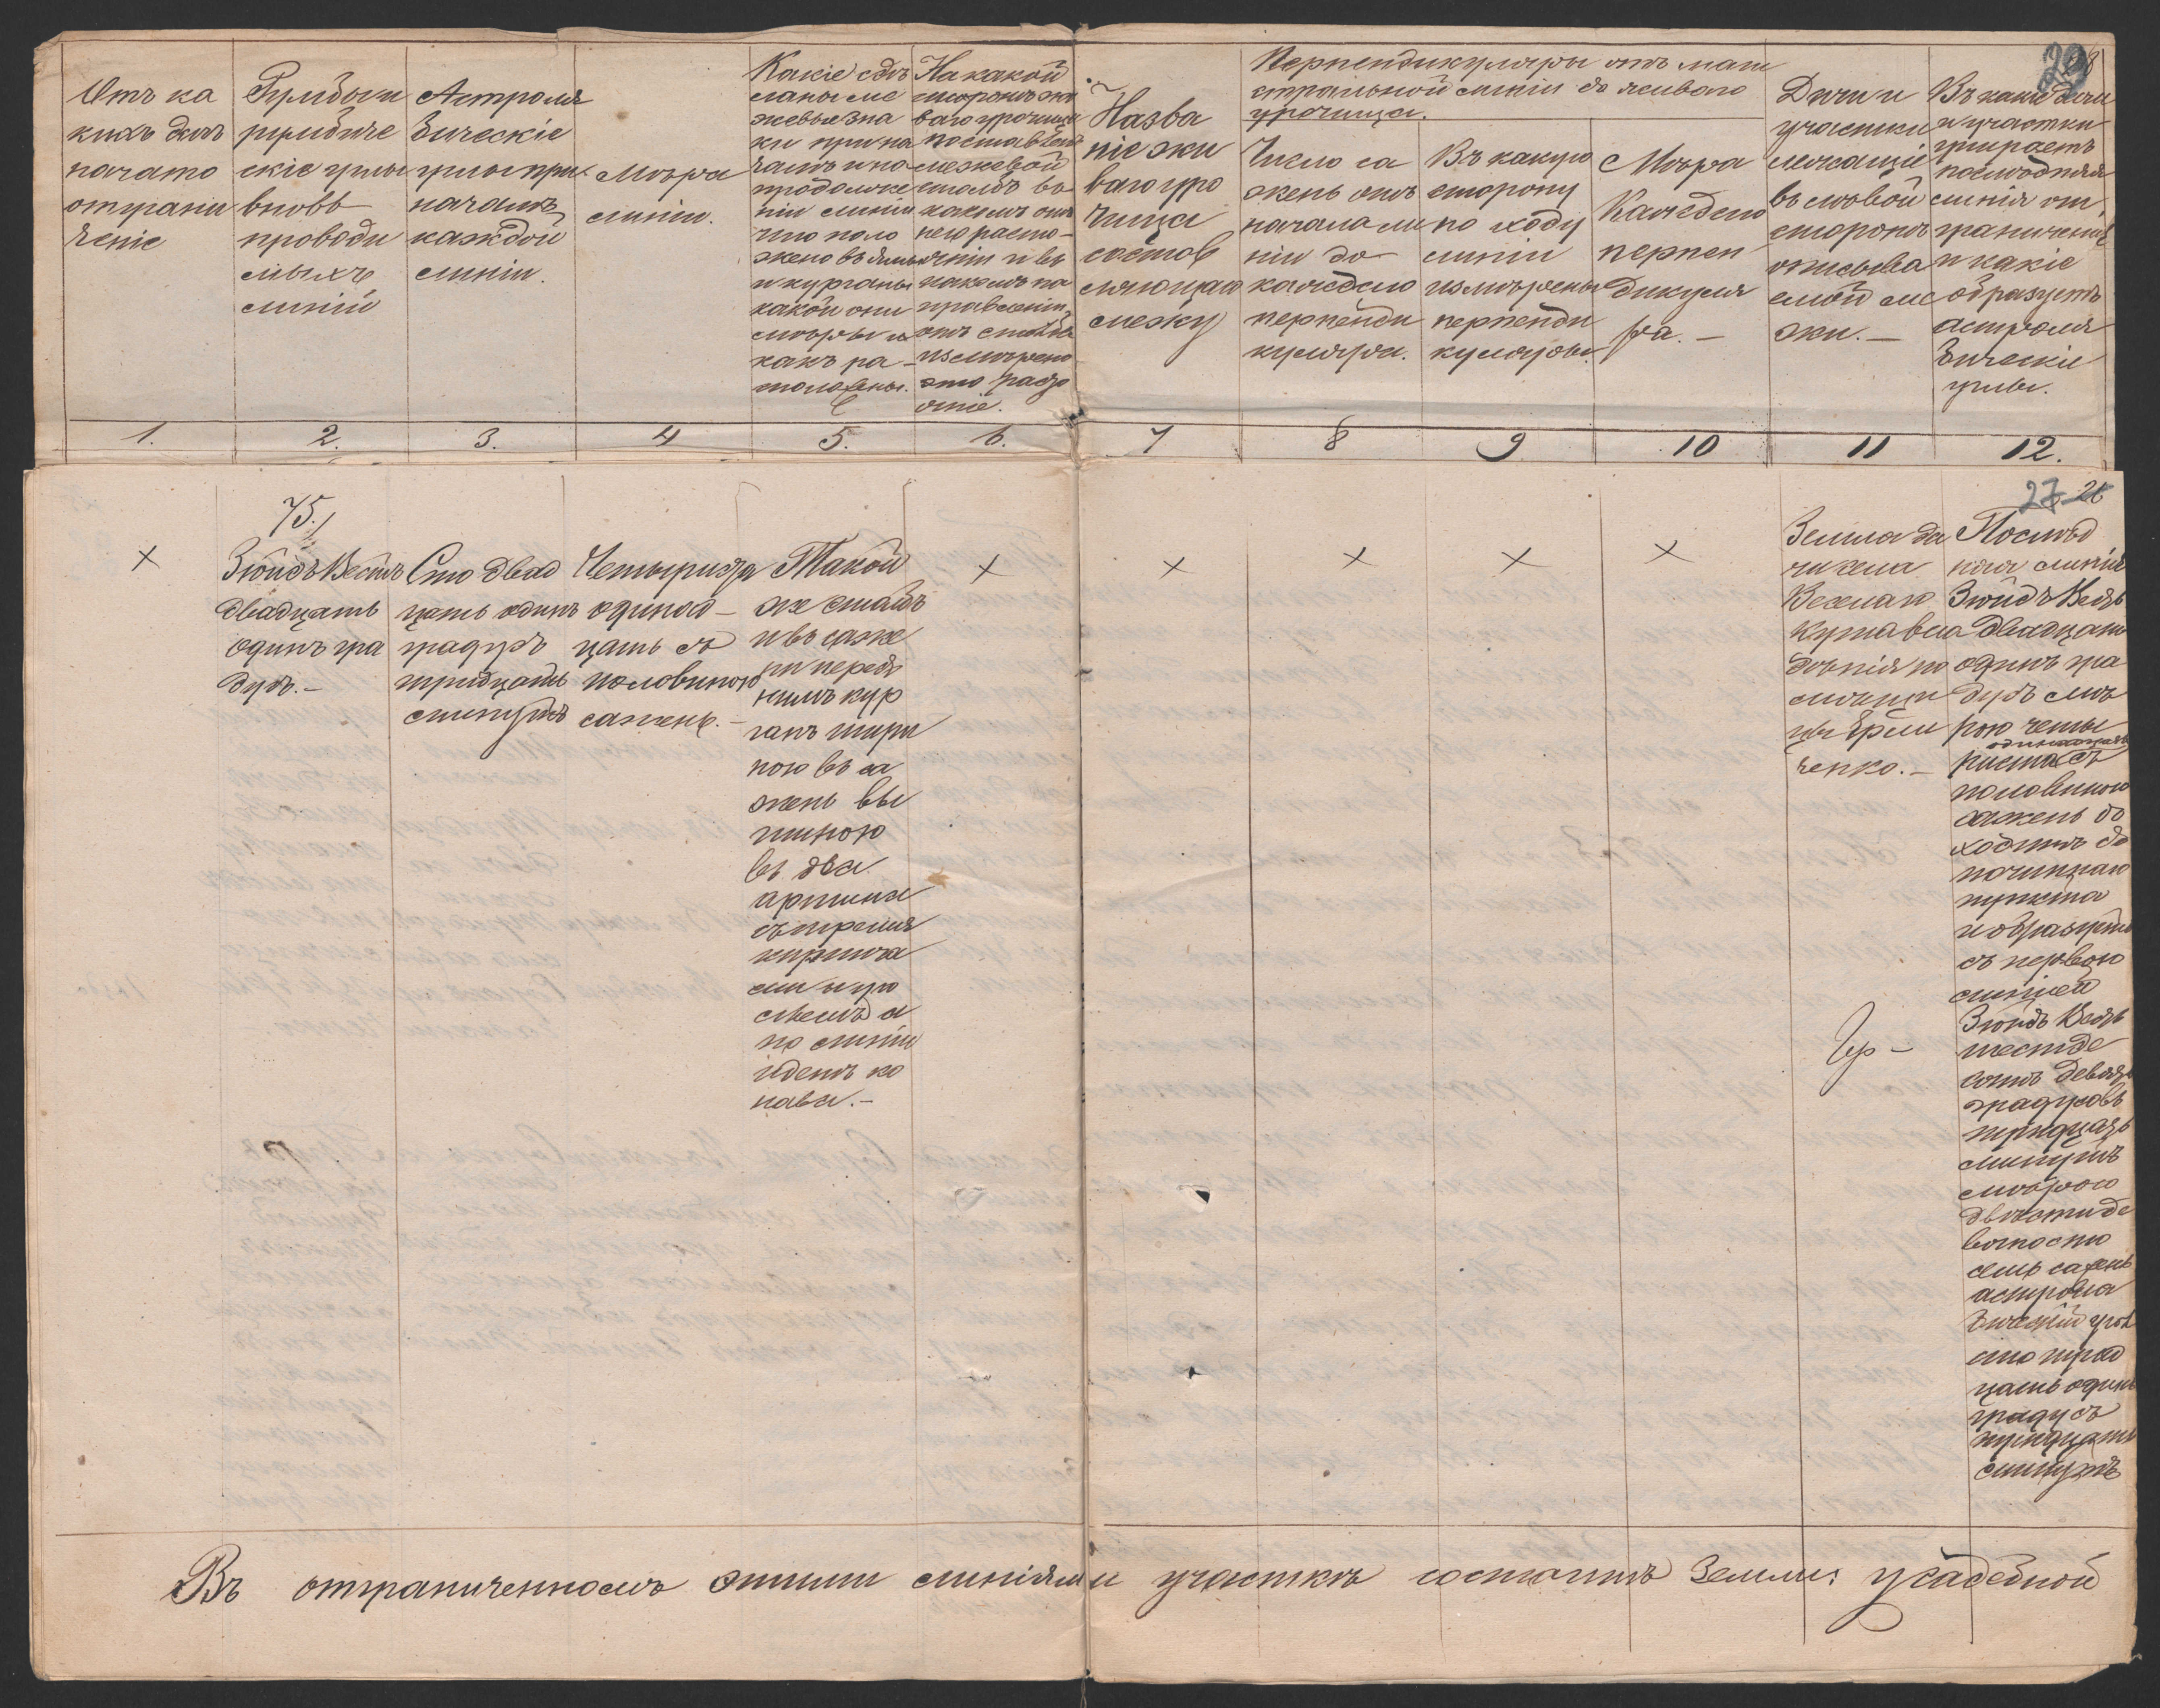 Отъ ка
кихъ дачъ
начато
отграни
ченіе
Румбы и
румбиче
скіе углы
вновь
проводи
мыхъ
линій
Астроля
бическіе
углы при
началѣ
каждой
линіи.
Мѣра
линіи.
Какіе сдѣ
ланы ме
жевые зна
ки при на
чалѣ и на
продолже
ніи линіи
что поло
жено въ ямы
и курганы
какой они
мѣры и
какъ ра
положены.
На какой
сторонѣ жи
ваго урочища
поставленъ
межевой
столбъ въ
какомъ отъ
него разсто-
яніи и въ
какомъ на
правленіи
отъ столба
измѣрено
это разсто
яніе.
Назва
ніе жи
ваго уро
чища
состав
ляющаго
межу
Перпендикуляры отъ маги
стральной линіи до живаго
урочища.
Число са
жень отъ
начала ли
ніи до
каждаго
перпенди
куляра.
Въ какую
сторону
по ходу
линіи
измѣрены
перпенди
куляры.
Мѣра
Каждаго
перпен
дикуля
ра. –
Дачи и
участки
лежащіе
въ лѣвой
сторонѣ
описыва
емой ме
жи. –
Въ какіе дачи
и участки
упираетъ
послѣдняя
линія от
граниченія
и какіе
образуетъ
астроля
бическіе
углы.
29
1. 2. 3. 4 5. 6. 7 8 9 10 11 12.
27 26
75.
×
Зюйдъ Вестъ
двадцать
одинъ гра
дусъ. –
Сто двад
цать одинъ
градусъ
тридцать
минутъ
Четыриста
одинад–
цать съ
половиною
сажень. –
Такой
же столбъ
и въ саже
ни передъ
нимъ кур
ганъ шири
ною въ са
жень вы
шиною
въ два
аршина
съ тремя
кирпича
ми и уго
лемъ а
по линіи
идетъ ко
нава. –
×
×
×
×
×
Земля да
чи села
Веселаго
Кутавла
дѣнія по
мѣщи
цы Ерми
ченко. –
Гр –
Послѣд
няя линія
Зюйдъ Вестъ
двадцать
одинъ гра
дусъ мѣ
рою четы
одинадцать
риста съ
половиною
сажень до
ходитъ до
починнаго
пункта
и образуетъ
съ первою
линіей
Зюйдъ Вестъ
шестьде
сятъ девять
градусовъ
тридцать
минутъ
мѣрою
двѣсти де
вяносто
семь сажень
астроля
бическій угол
сто трид
цать одинъ
градусъ
тридцать
минутъ
Въ отграниченномъ этими линіями участкѣ состоитъ земли: усадебной